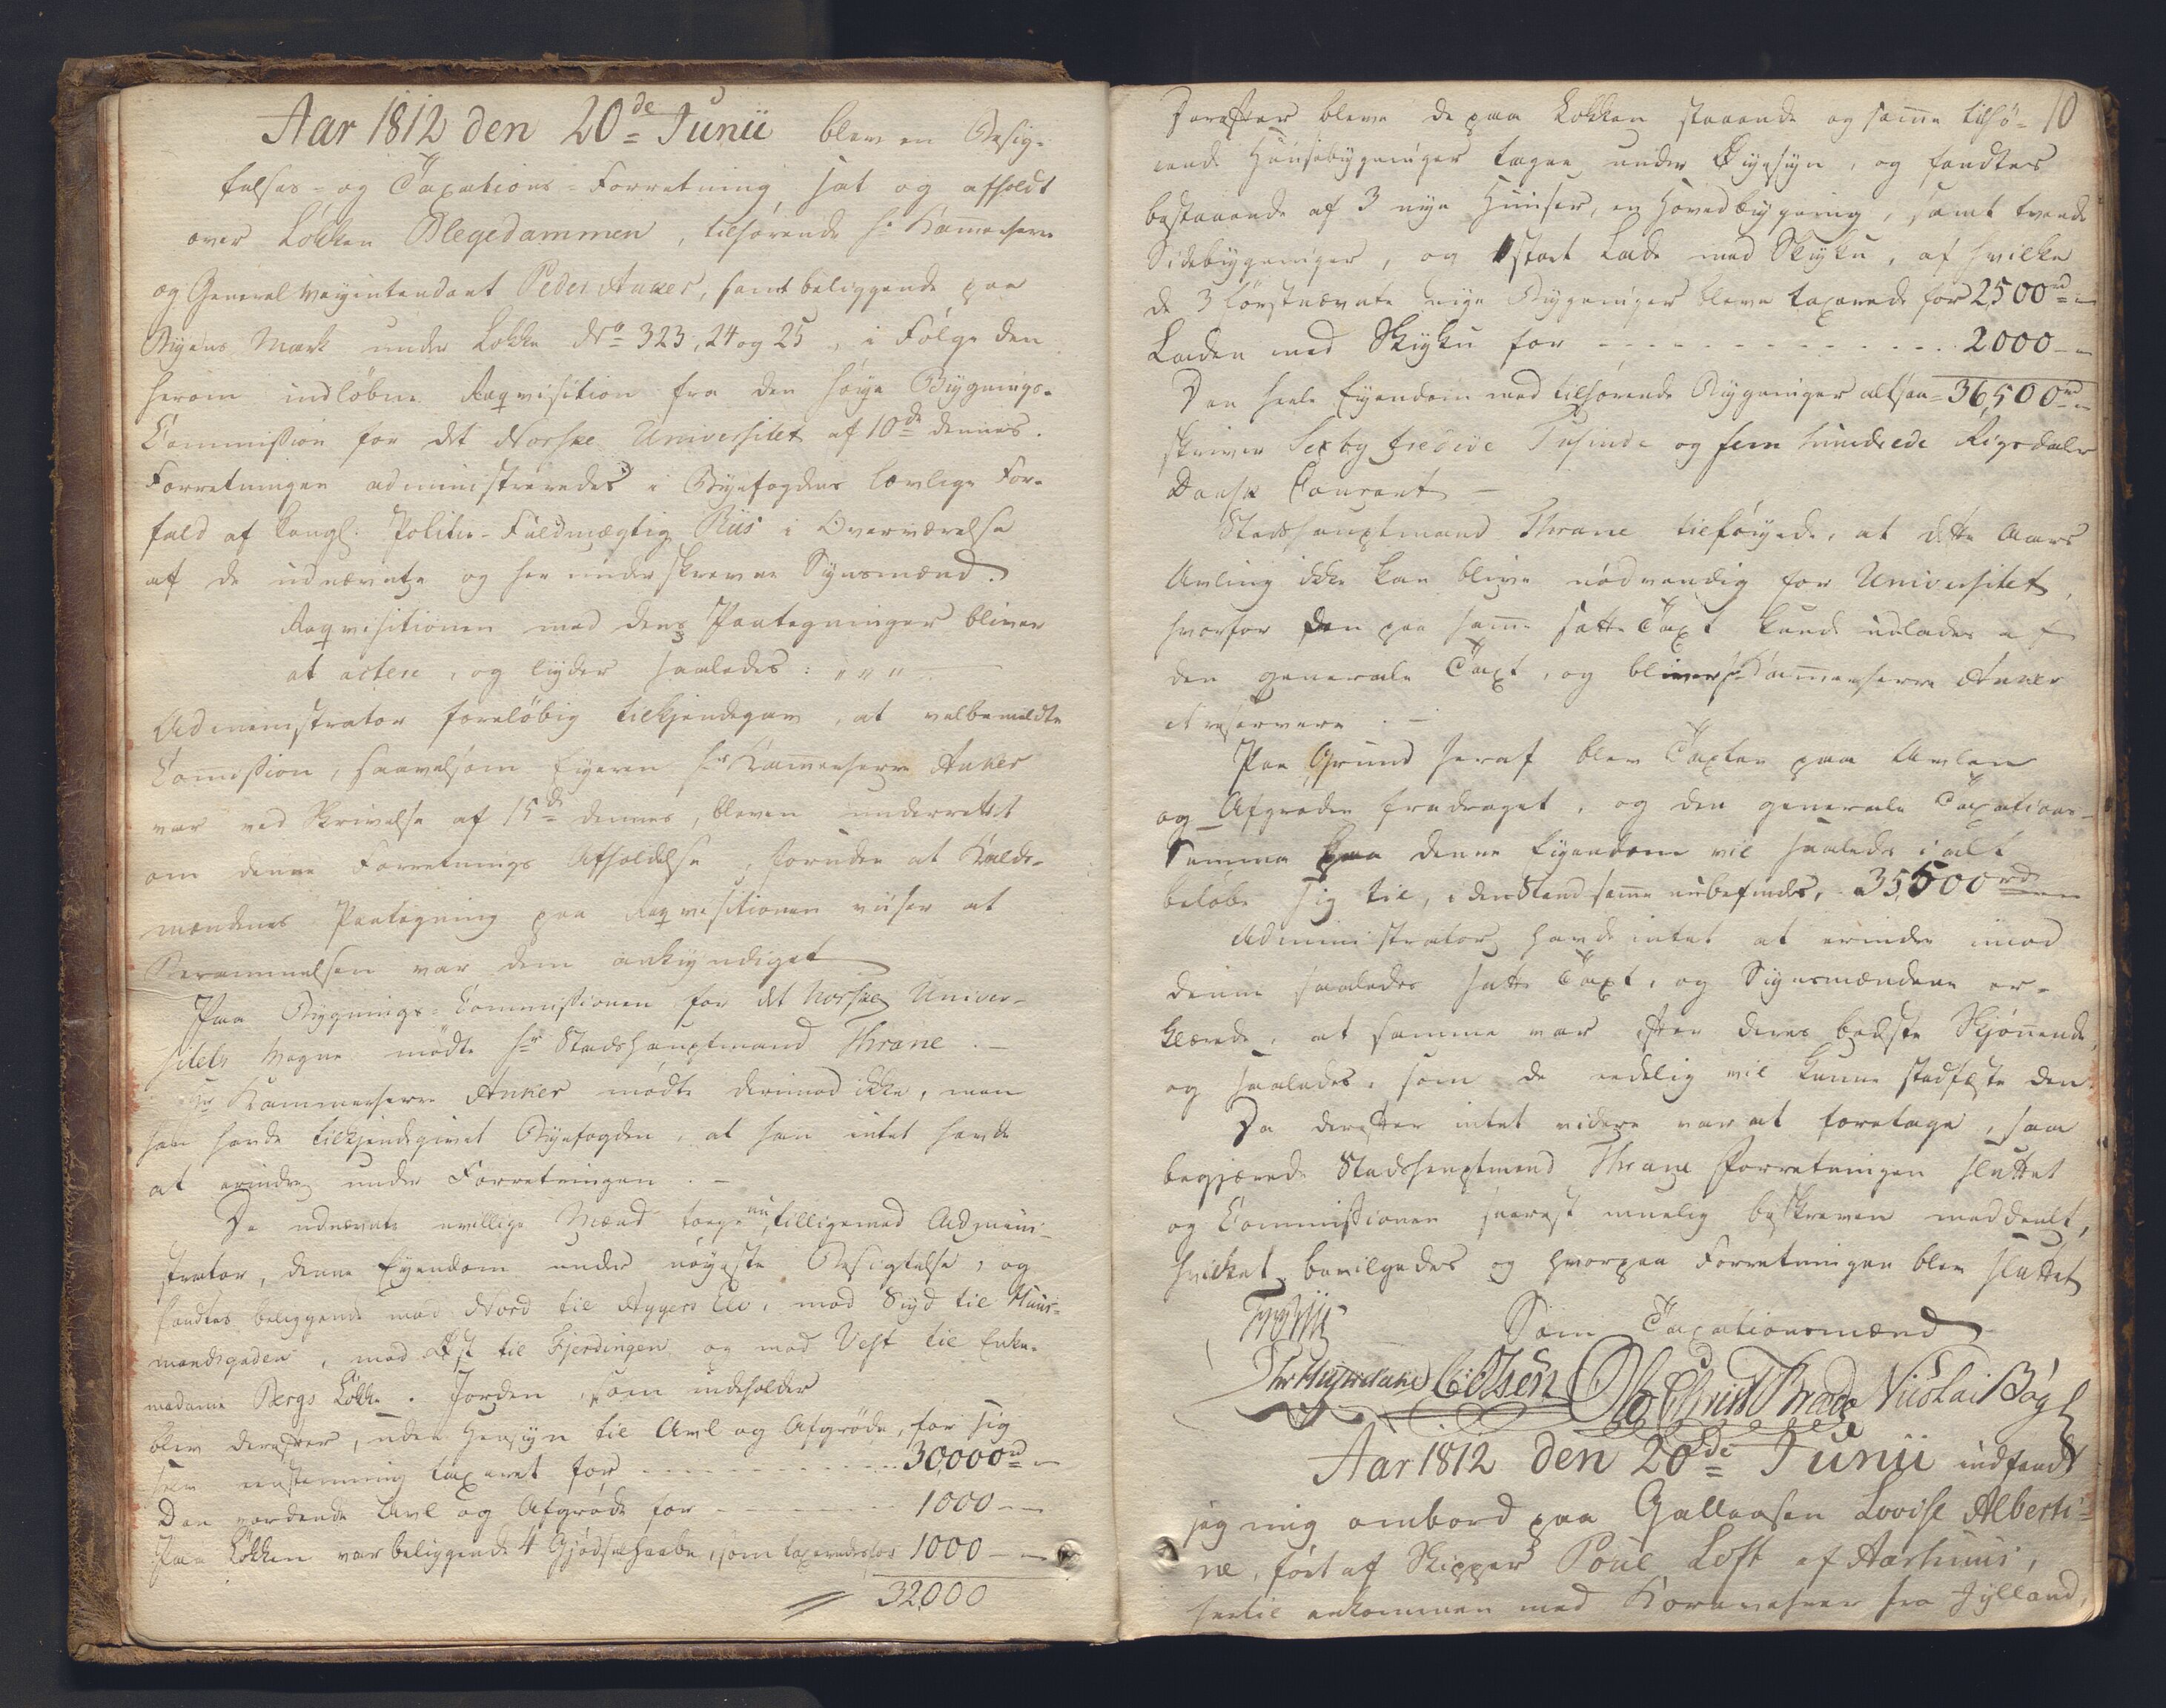 Aar 1812 den 20de Junii blev en Besig-
telses- og Taxations-Forretning, sat og afholdt
over Løkken Blegedammen, tilhørende Hr Kammerherre
og General Veyintendant Peder Anker, samt beliggende paa
Byens Mark under Løkke No 323, 24 og 25, i Følge den
herom indløbne Reqvisition fra den høye Bygnings-
Commission for det Norske Universitet af 10de dennes.
Forretningen administreredes i Byefogdens lovlige For-
fald af kongl: Politie-Fuldmægtig Riis i Overværelse
af de udnævnte og her underskrevne Synsmænd.
Reqvisitionen med dens Paategninger bliver
at actere, og lyder saaledes: „ „ „
Administrator foreløbig tilkjendegav, at velbemeldte
Comission, saavelsom Eyeren Hr Kammerherre Anker
var ved Skrivelse af 15de dennes, bleven underrettet
om denne Forretnings Afholdelse, foruden at Kalds-
mændenes Paategning paa Reqvisitionen viiser at
Berammelsen var dem ankyndiget
Paa Bygnings-Commissionen for det Norske Univer-
sitets Vegne mødte Hr Stadshauptmand Thrane. –
Hr Kammerherre Anker mødte derimod ikke, men
han havde tilkjendegivet Byefogden, at han intet havde
at erindre under Forretningen. –
De udnævnte uvillige Mænd toge nu, tilligemed Admini-
strator, denne Eyendom under nøyeste Besigtelse, og
fandtes beliggende mod Nord til Aggers Elv, mod Syd til Huus-
mandsgaden, mod Øst til Fjerdingen og mod Vest til Enke-
madame Bergs Løkke. Jorden, som indeholder
blev derefter, uden Hensyn til Avl og Afgrøde, for sig
selv eenstemmig taxeret for - - - - 30,000rd „
Den vordende Avl og Afgrøde for - - - - 1000 – „
Paa Løkken var beliggende 4 Gjødselhaabe, som taxeredes for 1000 – „
32,000
Derefter bleve de paa Løkken staaende og samme tilhø- 10
rende Huusebygninger tagne under Øyesyn, og fandtes
bestaaende af 3 nye Huuser, en Hovedbygning, samt tvende
Sidebygninger, og 1 stort Lade med Skyku, af hvilke
de 3 førstnævnte nye Bygninger bleve taxerede for 2,500rd „
Laden med Skyku for - - - - - - 2000 – „
Den heele Eyendom med tilhørende Bygninger altsaa = 36,500rd „
skriver Sex og tredive Tusinde og fem hundrede Rigsdaler
Dansk Courant –
Stadshauptmand Thrane tilføyede, at dette Aars
Avling ikke kan blive nødvendig for Universitet,
hvorfor den paa samme satte Taxt kunde udlades af
den generale Taxt, og bliver Hr Kammerherre Anker
at reservere. –
Paa Grund heraf blev Taxten paa Avlen
og Afgrøden fradraget, og den generale Taxations-
Summa paa denne Eyendom vil saaledes i alt
beløbe sig til, i den Stand samme nu befindes, 35,500rd „
Administrator havde intet at erindre imod
denne saaledes satte Taxt, og Synsmændene er-
klærede, at samme var efter deres bedste Skjønnende,
og saaledes, som de eedelig vil kunne stadfæste den.
Da derefter intet videre var at foretage, saa
begjærede Stadshauptmand Thrane Forretningen sluttet
og Commissionen snarest muelig beskreven meddeelt,
hvilket bevilgedes og hvorpaa Forretningen blev sluttet
Som Taxationsmænd
C: Olsen Ole Christ Nicolai
Aar 1812 den 20de Junii indfandt
jeg mig ombord paa Galleasen Lovise Alberti-
ne, ført af Skipper Poul Loft af Aarhuus,
hertil ankommen med Kornvahrer fra Jylland,